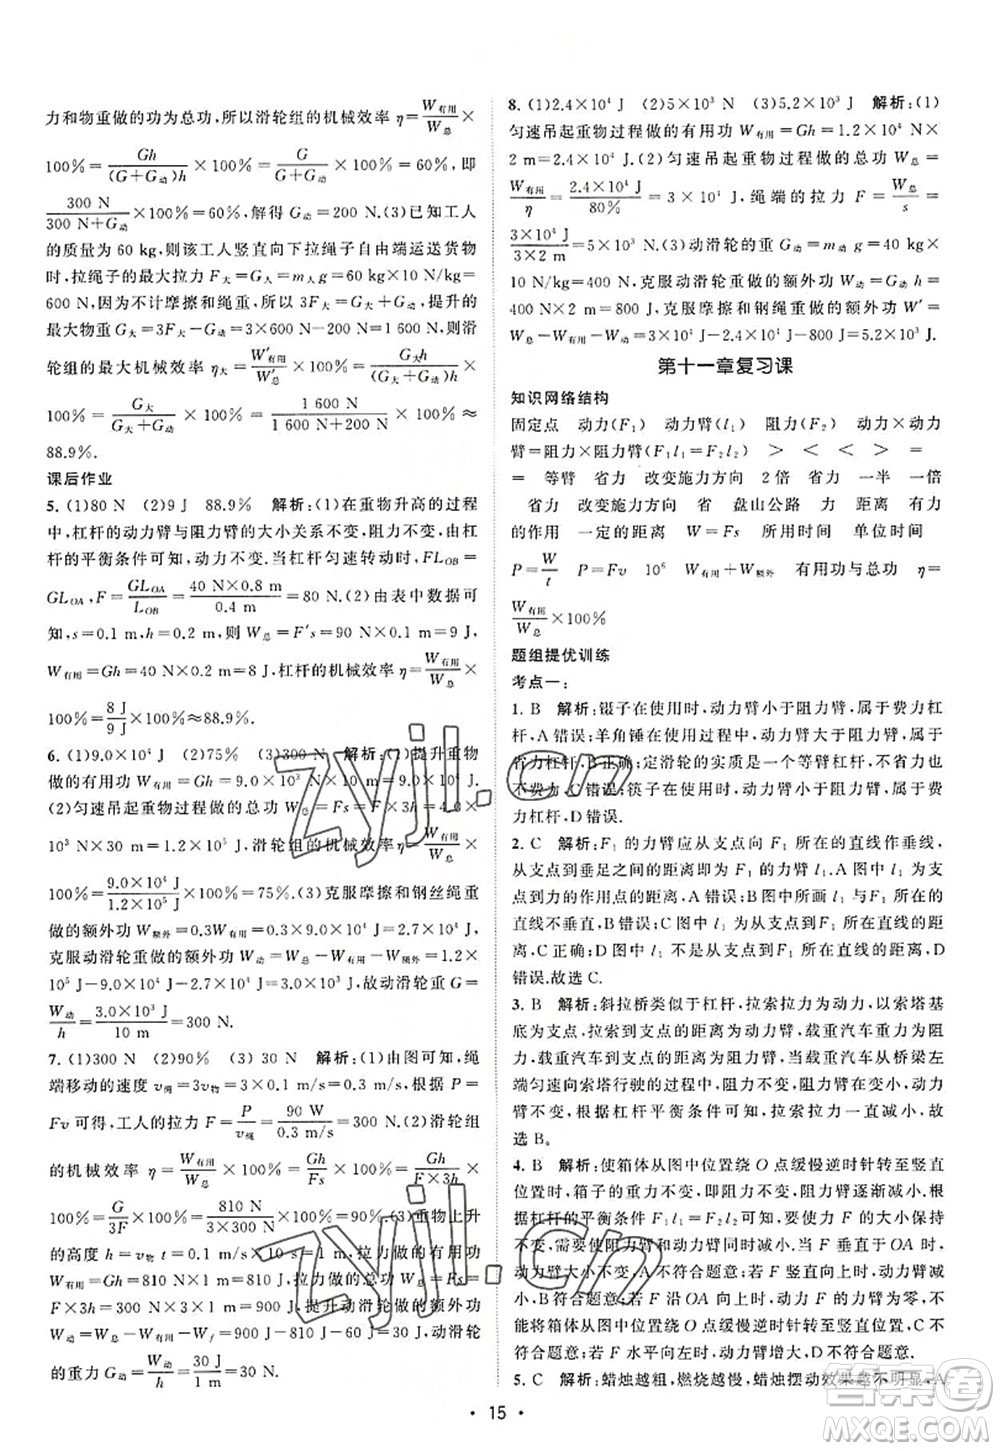 力和物重做的功为总功,所以滑轮组的机械效率 η=W有用/W总×
100%=Gh/((G+G动)h)×100%=G/(G+G动)×100%=60%,即
300 N/(300 N+G动)×100%=60%,解得 G动=200 N.(3)已知工人
的质量为 60 kg,则该工人竖直向下拉绳子自由端运送货物
时,拉绳子的最大拉力 F大=G人=m人g=60 kg×10 N/kg=
600 N,因为不计摩擦和绳重,所以 3F大=G大+G动,提升的
最大物重 G大=3F大-G动=3×600 N-200 N=1 600 N,则滑
轮组的最大机械效率 η大=W′有用/W′总×100%=G大h/((G大+G动)h)×
100%=G大/(G大+G动)×100%=1 600 N/(1 600 N+200 N)×100%≈
88.9%.
课后作业
5. (1)80 N (2)9 J 88.9% 解析:(1)在重物升高的过程
中,杠杆的动力臂与阻力臂的大小关系不变,阻力不变,由杠
杆的平衡条件可知,动力不变.当杠杆匀速转动时,FL_OB=
GL_OA,F=GL_OA/L_OB=40 N×0.8 m/0.4 m=80 N.(2)由表中数据可
知,s=0.1 m,h=0.2 m,则 W总=F′s=90 N×0.1 m=9 J,
W有用=Gh=40 N×0.2 m=8 J,杠杆的机械效率 η=W有用/W总×
100%=8 J/9 J×100%≈88.9%.
6. (1)9.0×10⁴ J (2)75% (3)300 N 解析:(1)提升重物
做的有用功 W有用=Gh=9.0×10³ N×10 m=9.0×10⁴ J.
(2)匀速吊起重物过程做的总功 W总=Fs=F×3h=4.0×
10³ N×30 m=1.2×10⁵ J,滑轮组的机械效率 η=W有用/W总×
100%=9.0×10⁴ J/1.2×10⁵ J×100%=75%.(3)克服摩擦和钢丝绳重
做的额外功 W额外=0.3W有用=0.3×9.0×10⁴ J=2.7×10⁴ J,
克服动滑轮重做的额外功 W动=W总-W有用-W额外=1.2×
10⁵ J-9.0×10⁴ J-2.7×10⁴ J=3.0×10³ J,动滑轮重 G=
W动/h=3.0×10³ J/10 m=300 N.
7. (1)300 N (2)90% (3) 30 N 解析:(1)由图可知,绳
端移动的速度 v绳=3v物=3×0.1 m/s=0.3 m/s,根据 P=
Fv 可得,工人的拉力 F=P/v绳=90 W/0.3 m/s=300 N.(2)滑轮组
的机械效率 η=W有用/W总×100%=Gh/Fs×100%=Gh/(F×3h)×
100%=G/3F×100%=810 N/(3×300 N)×100%=90%.(3)重物上升
的高度 h=v物t=0.1 m/s×10 s=1 m,拉力做的有用功
W有用=Gh=810 N×1 m=810 J,拉力做的总功 W总=Fs=
F×3h=300 N×3×1 m=900 J,提升动滑轮做的额外功
W动=W总-W有用-Wf=900 J-810 J-60 J=30 J,动滑轮
的重力 G动=W动/h=30 J/1 m=30 N.
8. (1)2.4×10⁴ J (2)5×10³ N (3)5.2×10³ J 解析:(1)
匀速吊起重物过程做的有用功 W有用=Gh=1.2×10⁴ N×
2 m=2.4×10⁴ J.(2)匀速吊起重物过程做的总功 W总=
W有用/η=2.4×10⁴ J/80%=3×10⁴ J,绳端的拉力 F=W总/s=
3×10⁴ J/(3×2 m)=5×10³ N.(3)动滑轮的重 G动=m动g=40 kg×
10 N/kg=400 N,克服动滑轮重做的额外功 W动=G动h=
400 N×2 m=800 J,克服摩擦和钢绳重做的额外功 W′=
W总-W有用-W动=3×10⁴ J-2.4×10⁴ J-800 J=5.2×10³ J.
第十一章复习课
知识网络结构
固定点 动力(F₁) 动力臂(l₁) 阻力(F₂) 阻力臂(l₂) 动力×动力
臂=阻力×阻力臂(F₁l₁=F₂l₂) > < > < =
= 等臂 省力 改变施力方向 2倍 省力 一半 一倍
省力 改变施力方向 省力 盘山公路 力 距离 有力
的作用 一定的距离 W=Fs 所用时间 单位时间
P=W/t P=Fv 10⁶ W有用+W额外 有用功与总功 η=
W有用/W总×100%
题组提优训练
考点一:
1. B 解析:镊子在使用时,动力臂小于阻力臂,属于费力杠
杆,A 错误;羊角锤在使用时,动力臂大于阻力臂,属于
省力杠杆,B 正确;定滑轮的实质是一个等臂杠杆,不省力也
不费力,C 错误;筷子在使用时,动力臂小于阻力臂,属于费
力杠杆,D 错误.
2. C 解析:F₁ 的力臂应从支点向 F₁ 所在的直线作垂线,
从支点到垂足之间的距离即为 F₁ 的力臂.A 图中 l₁ 是支
点到力的作用点的距离,A 错误;B 图中 l₁ 与 F₁ 所在的
直线不垂直,B 错误;C 图中 l₁ 为从支点到 F₁ 所在直线的距
离,C 正确;D 图中 l₁ 不是从支点到 F₁ 所在直线的距离,D
错误.故选 C.
3. B 解析:斜拉桥类似于杠杆,拉索拉力为动力,以索塔基
底为支点,拉索到支点的距离为动力臂,载重汽车为阻力,
载重汽车到支点的距离为阻力臂,当载重汽车从桥梁左
端匀速向索塔行驶的过程中,阻力不变,阻力臂变小,动力
臂不变,根据杠杆平衡条件可知,拉索拉力会变小,故
选 B。
4. B 解析:使箱体从图中位置绕 O 点缓慢逆时针转至竖直
位置的过程中,箱子的重力不变,即阻力不变,阻力臂逐渐减小,根据
杠杆的平衡条件 F₁l₁=F₂l₂ 可知,要使力 F 的大小保持
不变,需使阻力臂和动力臂同时变小.当 F 垂直于 OA 向上
时,动力臂不变,A 不符合题意;F 竖直向上时,动力臂减
小,B 符合题意;若 F 沿 OA 向上时,F 的力臂为零,F 不
能将箱体从图中位置绕 O 点缓慢逆时针转至竖直位置,C
不符合题意;若 F 水平向右,动力臂变大,D 不符合题意.
5. C 解析:蜡烛越粗,燃烧越慢,蜡烛摆动效果越不明显,A
· 15 ·
zyjl.cn
zyjl.cn
答案圈
MXQE.COM